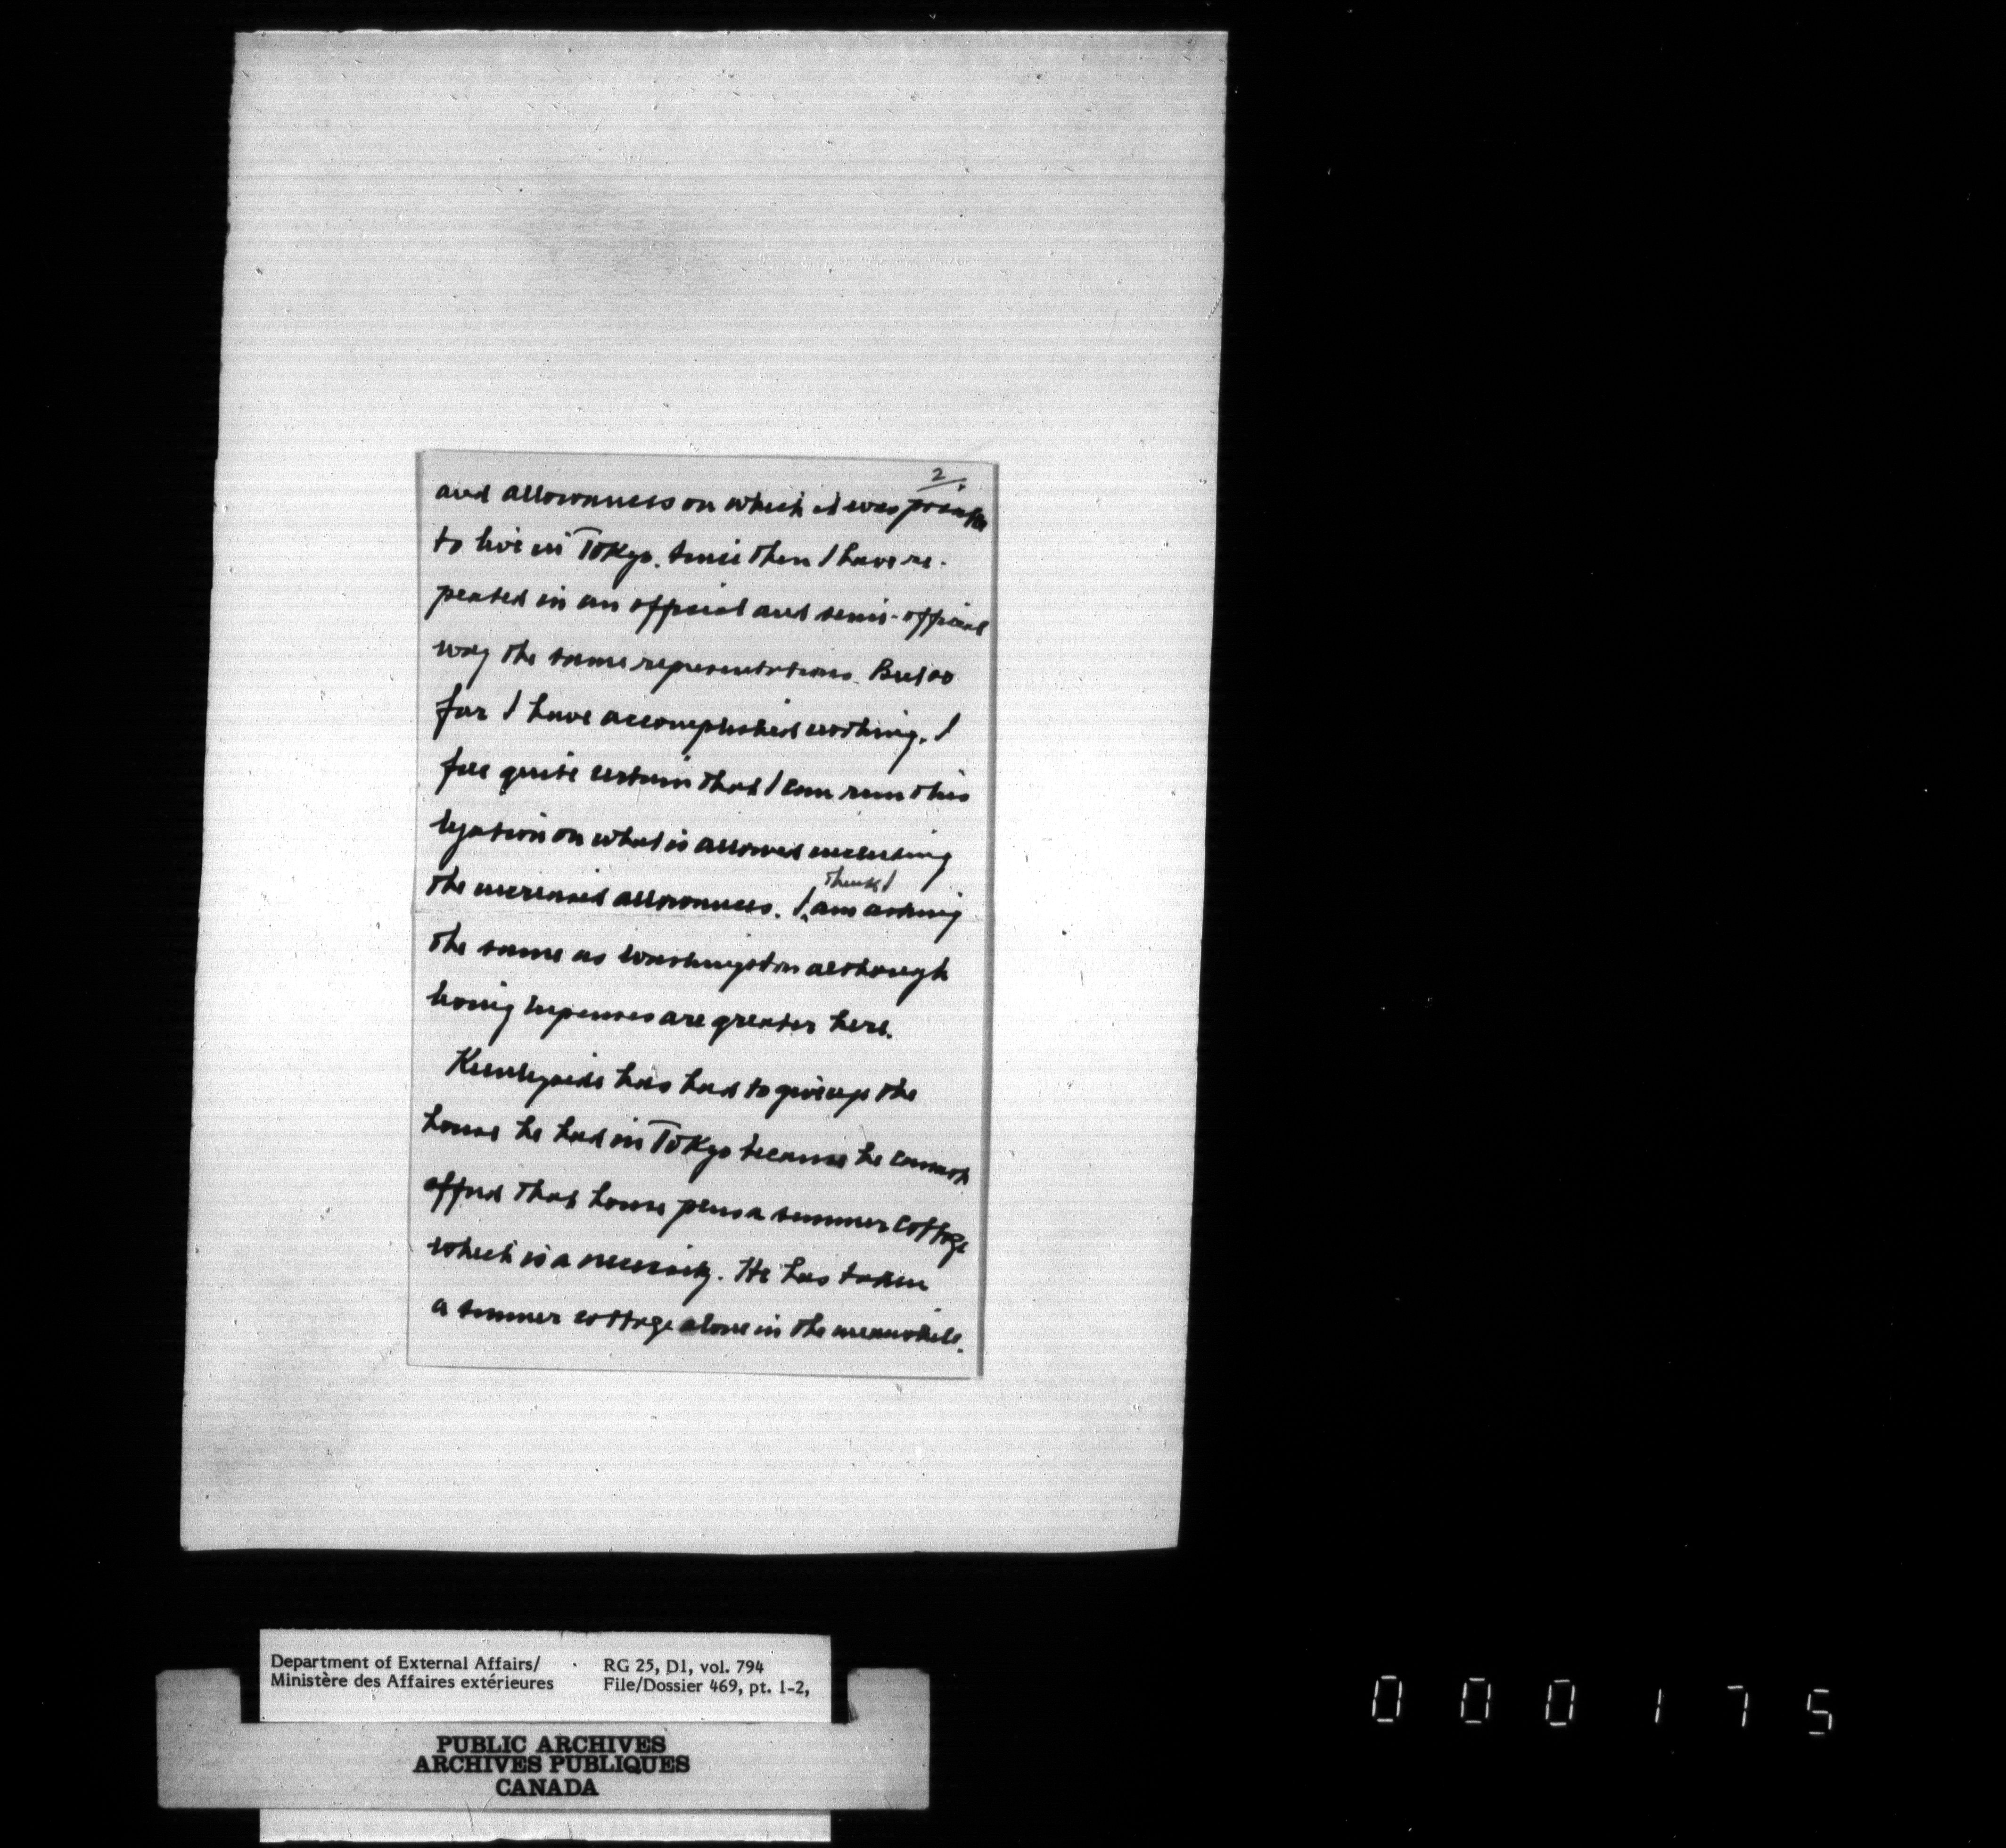 2.
and allowances on which it was possible
to live in Tokyo. Since then I have re-
peated in an official and semi-official
way the same representations. But so
far I have accomplished nothing. I
feel quite certain that I can run this
legation on what is allowed including
the increased allowances. I think I am asking
the same as Washington although
living expenses are greater here.
Keenleyside has had to give up the
house he had in Tokyo because he cannot
afford that house plus a summer cottage
which is a necessity. He has taken
a summer cottage alone in the meanwhile.
Department of External Affairs/
Ministère des Affaires extérieures
RG 25, D1, vol. 794
File/Dossier 469, pt. 1-2,
PUBLIC ARCHIVES
ARCHIVES PUBLIQUES
CANADA
000175